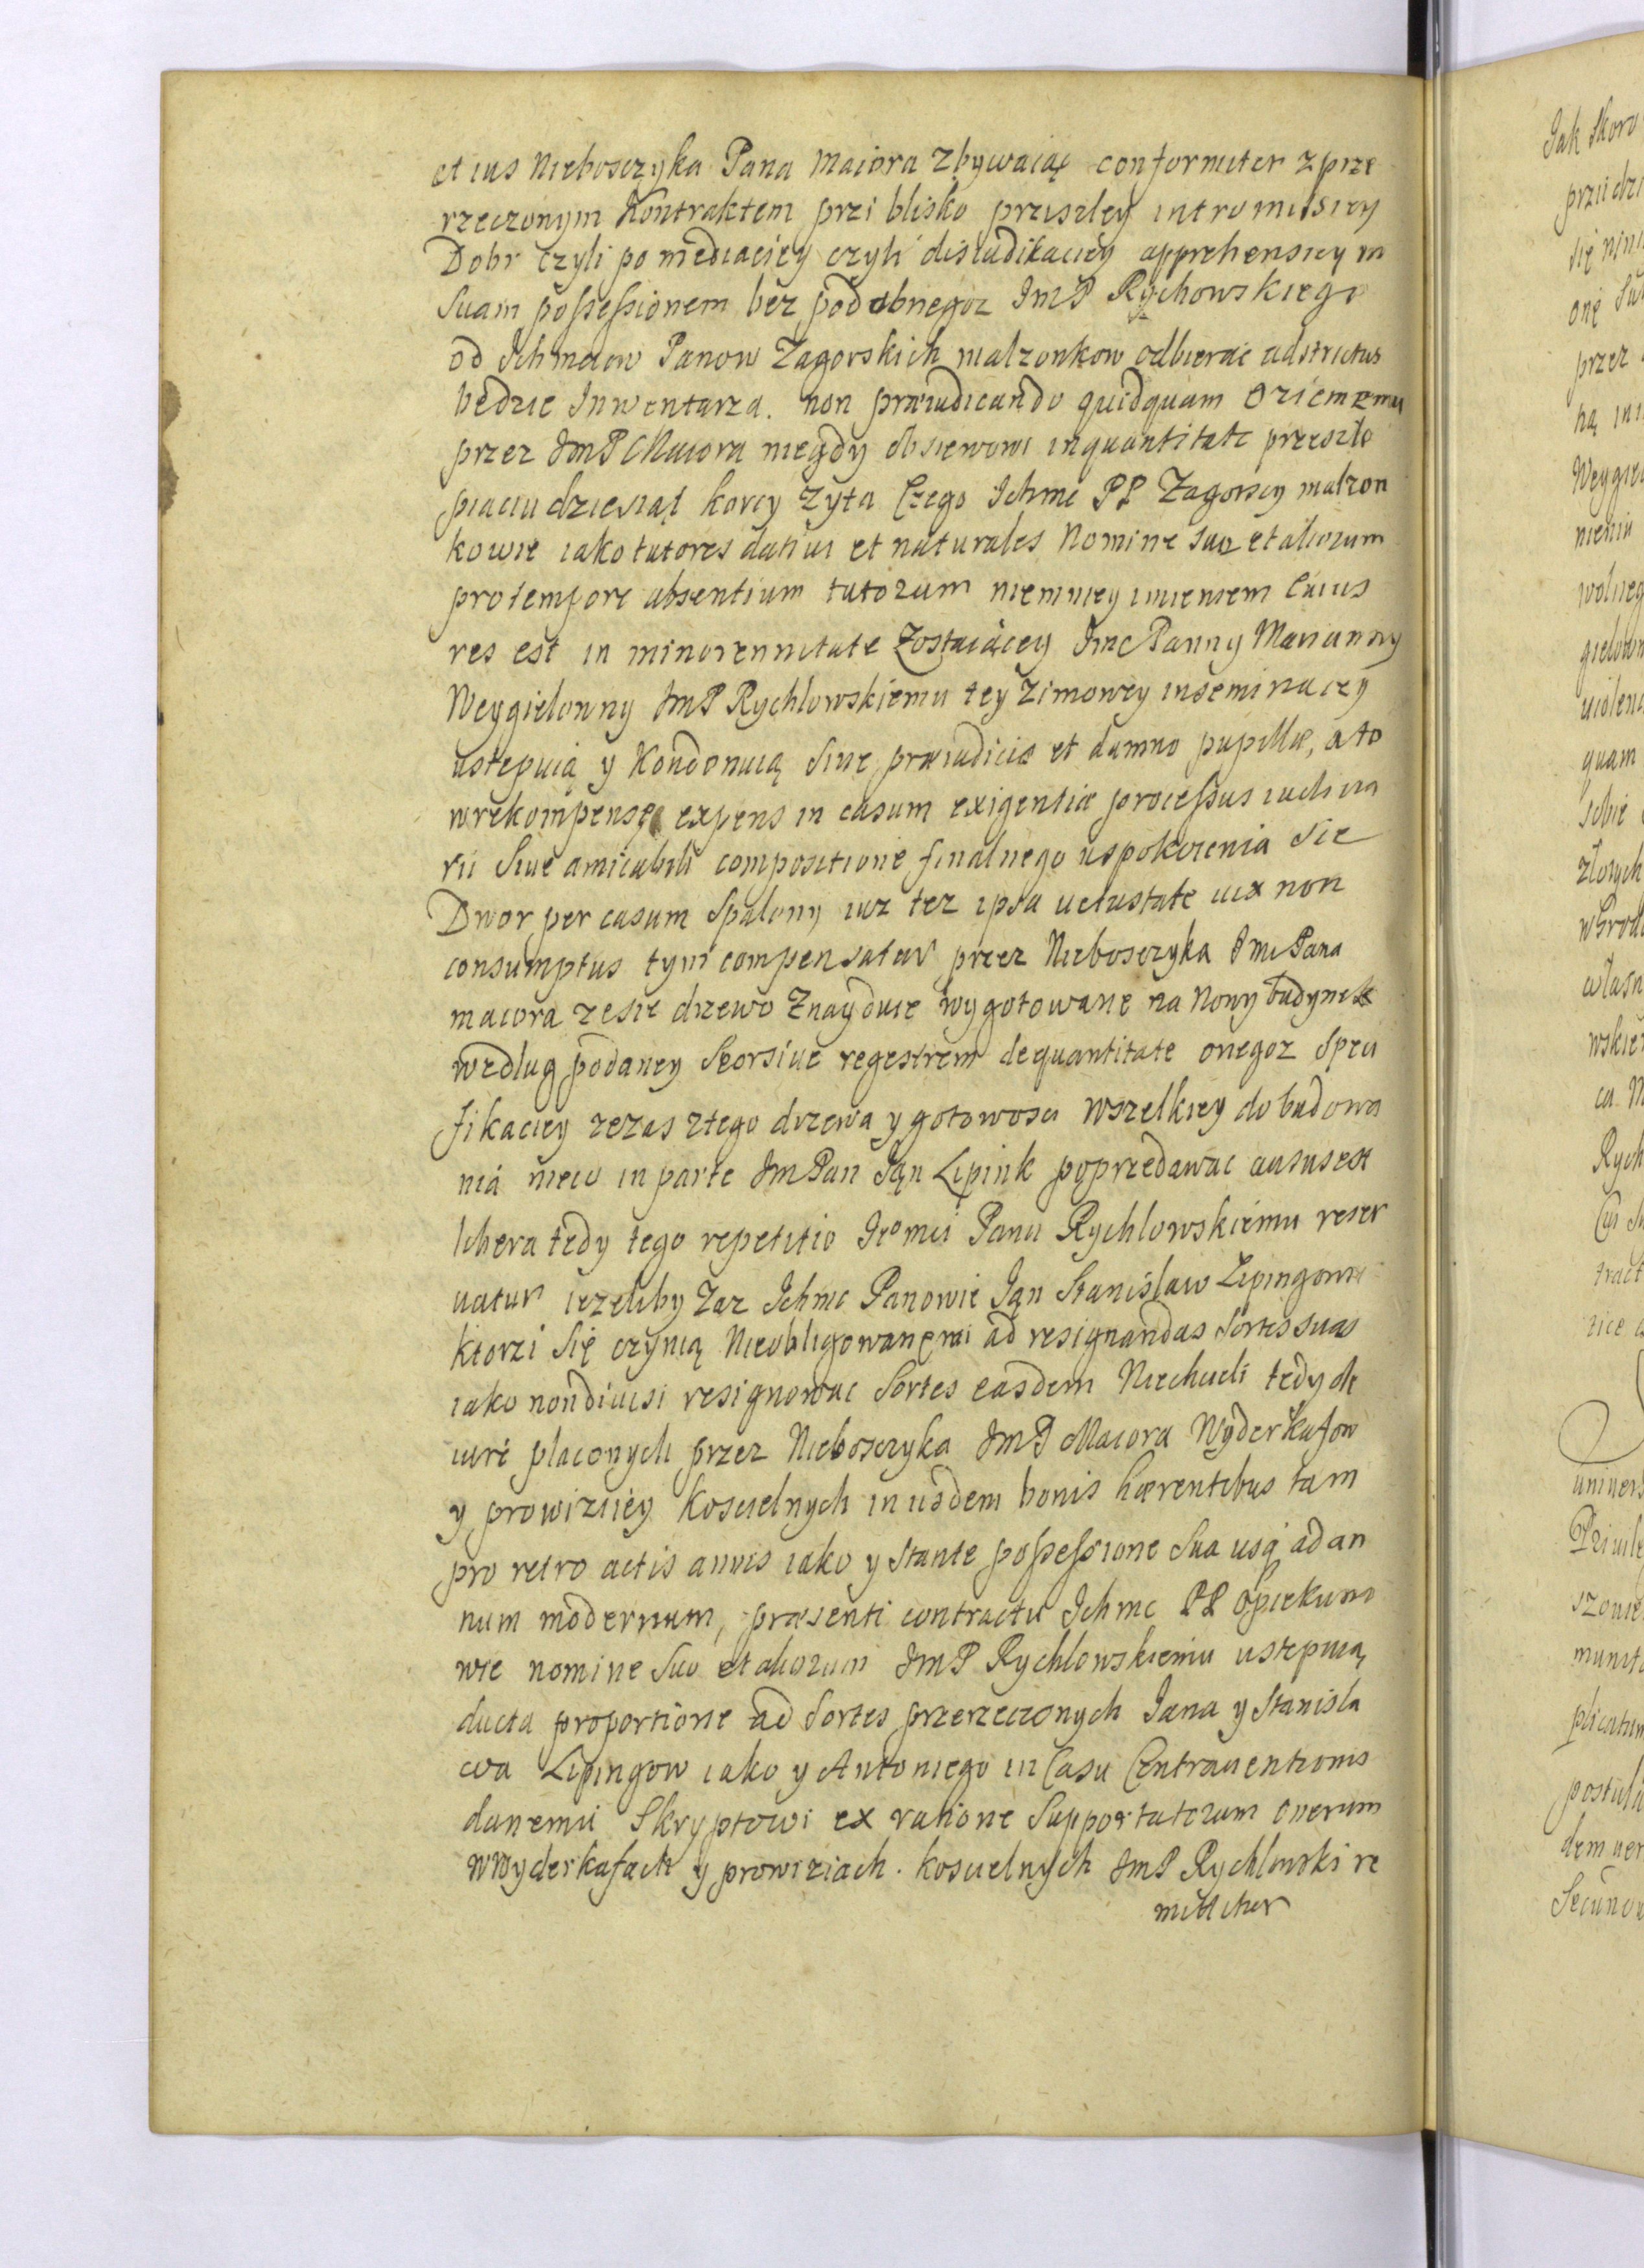 et ius Nieboszczyka Pana Maiora zbywaiąc conformiter z prze
rzeczonym Kontraktem przi blisko przeszłey intromissiey
Dobr czyli po mediaciey czyli disiudikaciey apprehensiey in
Suam possessionem bez podobnegoz ImP Rychowskiego
od Ichmciow Panow Zagorskich malzonkow odbierac adstrictus
będzie Inwentarza. non præiudicando quidquam Oziememu
przez ImP Maiora niegdy obsiewowi inquantitate przeszlo
piąciudziesiąt korcy zyta Czego Ichmc PP Zagorscy malzon
kowie iako tutores dativi et naturales Nomine suo et aliorum
protempore absentium tutorum niemniey imieniem Cuius
res est in minorennitate Zostaiącey Imc Panny Marianny
Weygielowny ImP Rychlowskiemu tey zimowey inseminaczy
ustępuią y Kondonuią Sine præiudicio et damno pupillæ, a to
wrekompensę expens in casum exigentiæ processus iudicia
rii Siue amicabili compositione finalnego uspokoienia Sie
Dwor per casum Spalony iuz tez ipsa uetustate uix non
consumptus tym compensatur przez Nieboszczyka Imc Pana
maiora ze sie drzewo Znayduie wygotowane na Nowy budynek
według podaney Seorsiue regestrem dequantitate onegoz Speci
fikaciey zezas ztego drzewa y gotowosci wszelkiey do budowa
nia nieco in parte ImPan Jąn Lipink poprzedawac ausus est
libera tedy tego repetitio Iegomci Panu Rychlowskiemu reser
uatur iezeliby Zaz Ichmc Panowie Jąn Stanislaw Lipingowie
ktorzi Się czynią Nieobligowanemi ad resignandas Sortes suas
iako nondiuisi resignowac Sortes easdem Niechcieli tedy de
iure placonych przez Nieboszczyka ImP Maiora Wyderkafow
y prowiziiey Koscielnych in iisdem bonis hærentibus tam
pro retro actis annis iako y Stante possessione Sua usq ad an
num modernum, præsenti contractu Ichmc PP Opiekuno
wie nomine Suo et aliorum ImP Rychlowskiemu ustępuią
ducta proportione ad Sortes przerzeczonych Jana y Stanisla
wa Lipingow iako y Antoniego in Casu Contrauentionis
danemu Skryptowi ex ratione Supportatorum onerum
wwyderkafach y prowiziach. koscielnych ImP Rychlowski re
mittitur